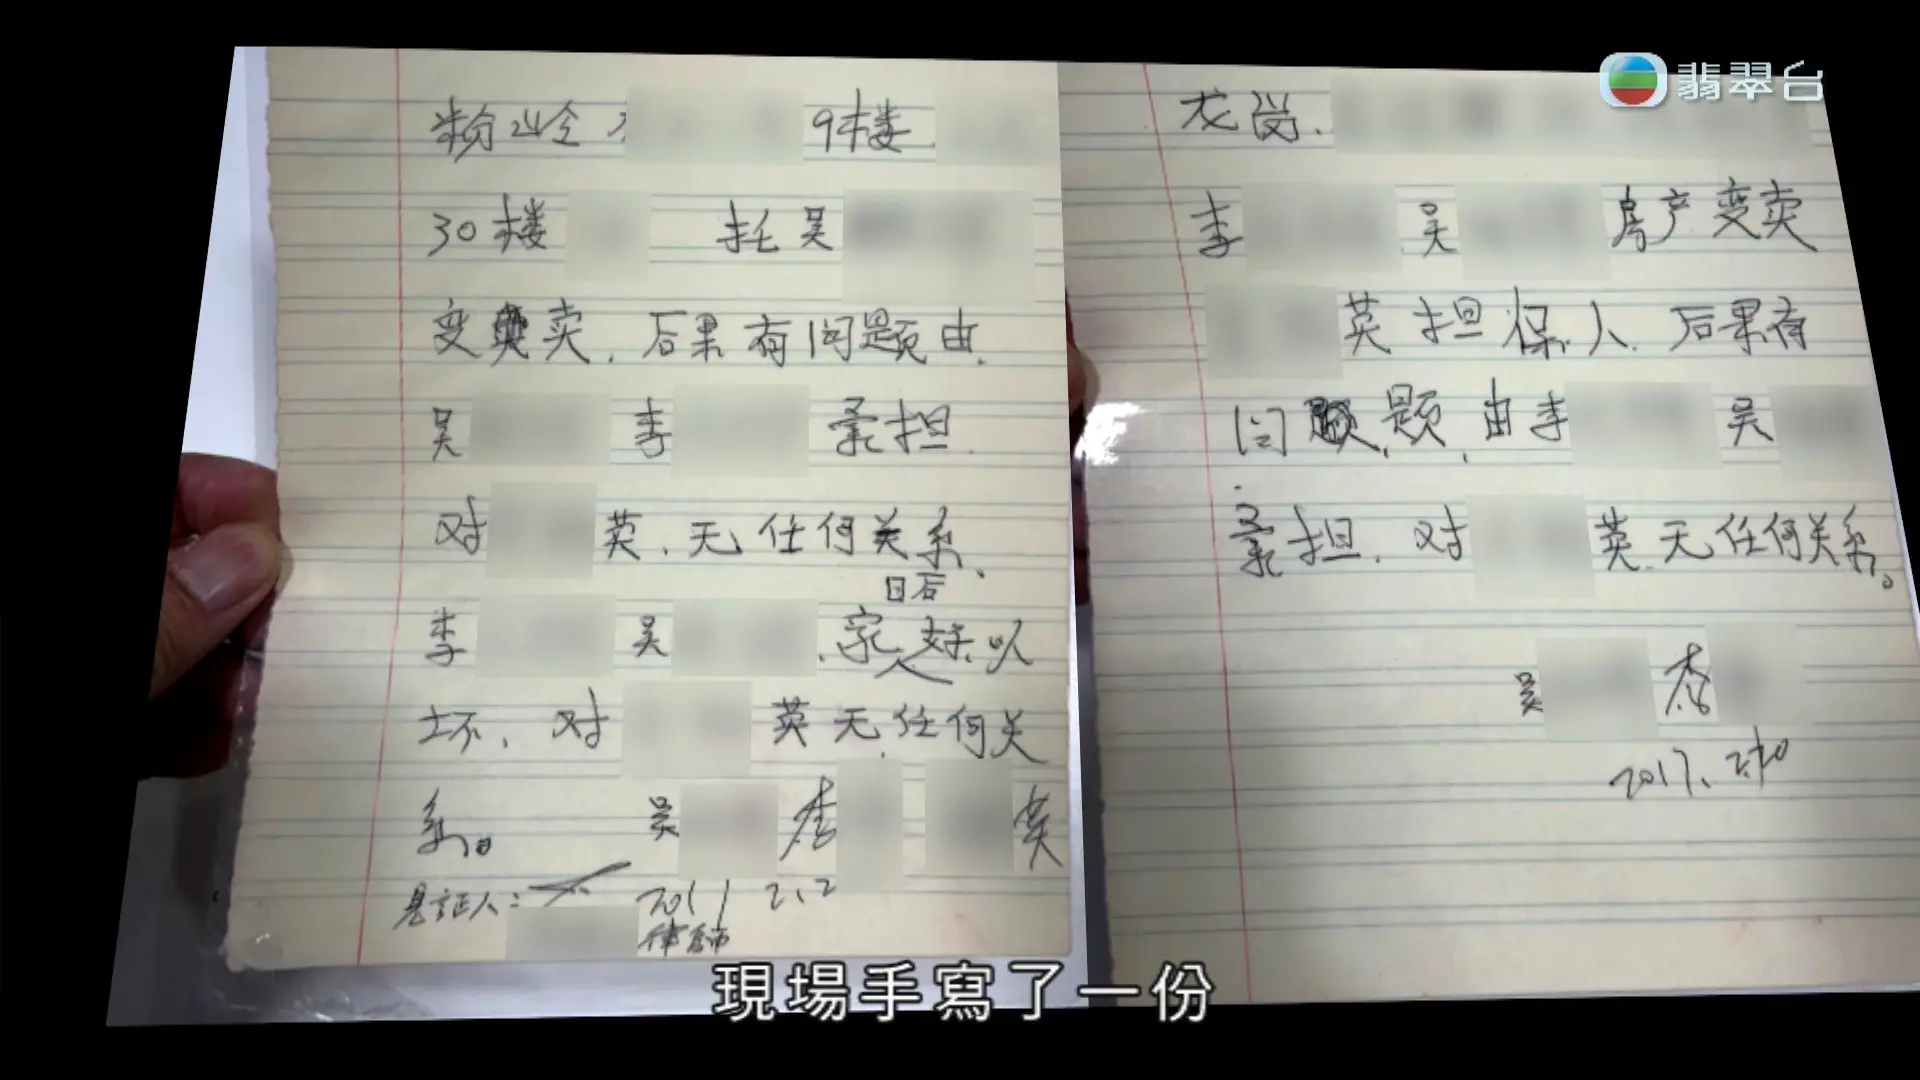 翡翠台
粉岭 9楼
30楼 托吴
变卖.后果有问题由.
吴 李 承担.
对 英.无任何关系.
日后
李 吴 .家人好.以
坏、对 英无.任何关
系。
吴 李 英
見証人: 2011 2.2
律師
龙岗.
李 吴 房产变卖
英担保人.后果有
问 题.由李 吴
承担.对 英.无任何关系。
吴 李
現場手寫了一份